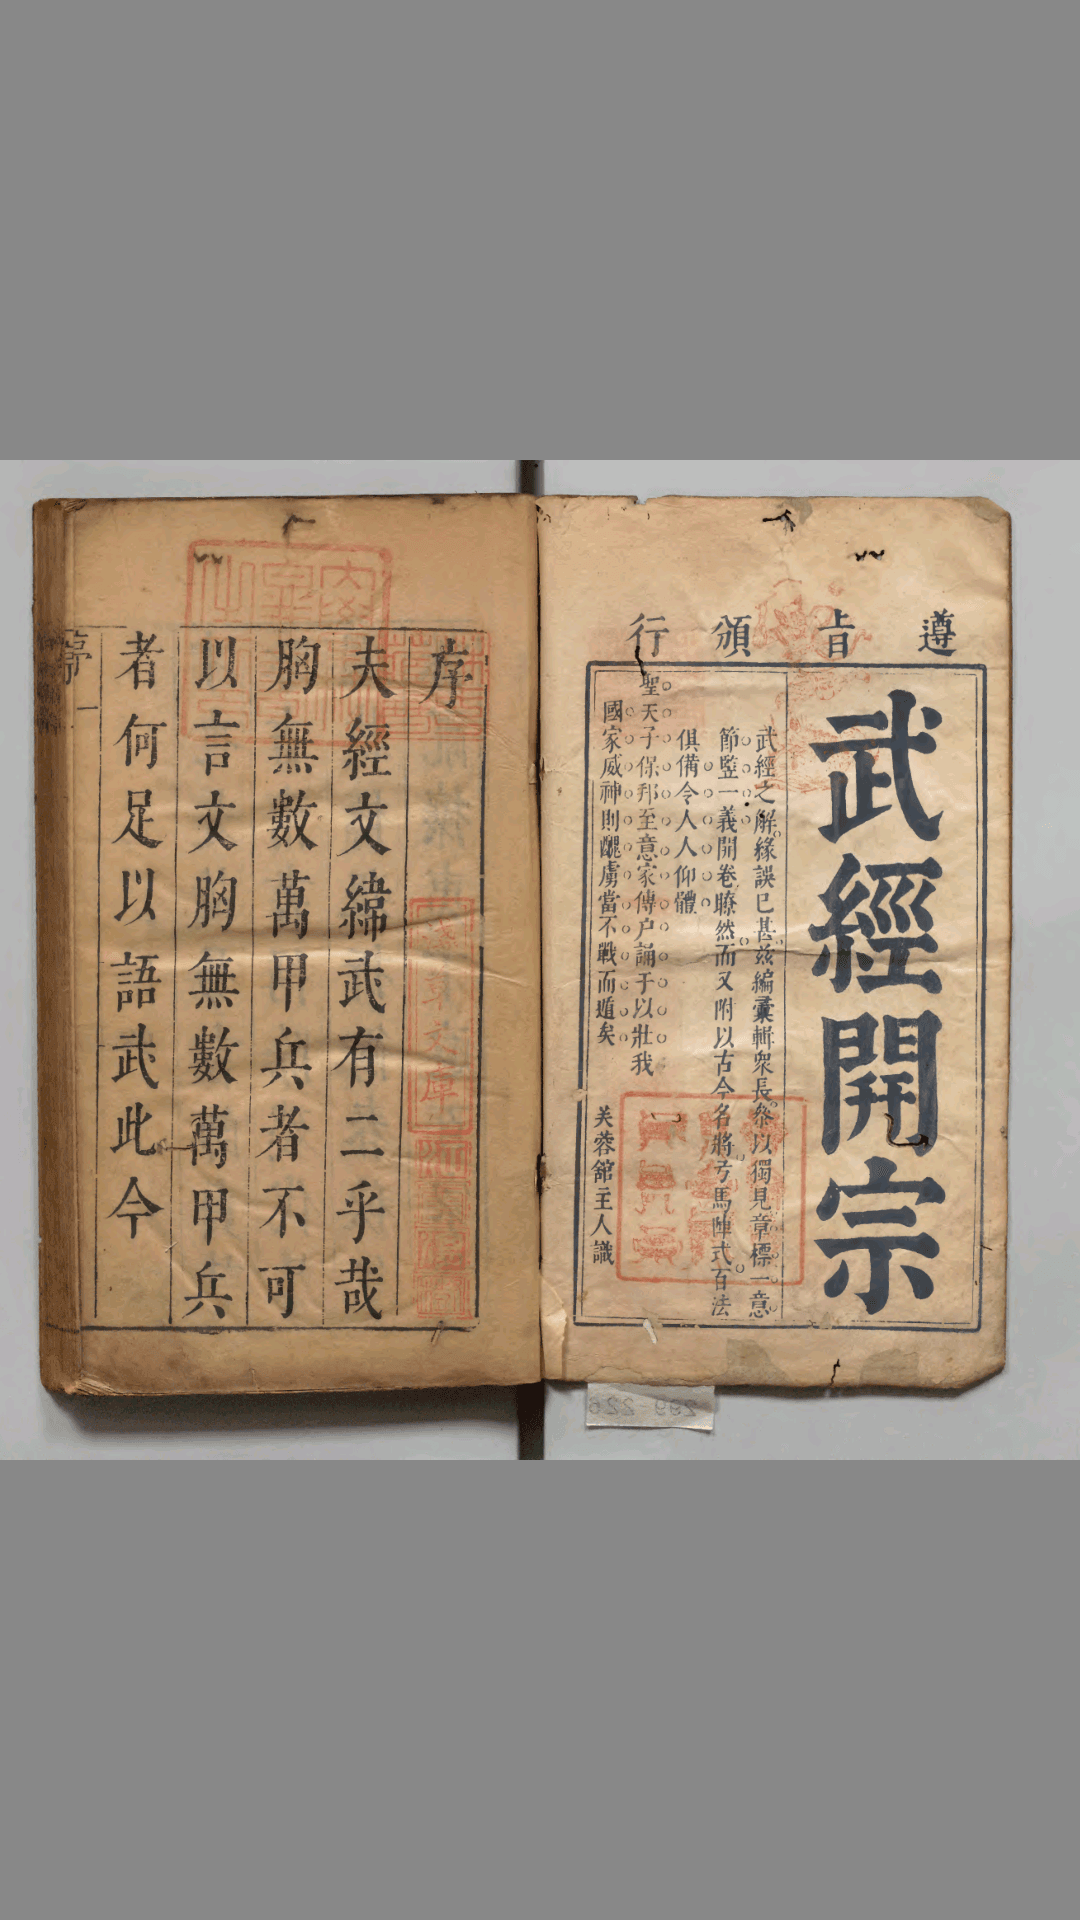 遵旨頒行
武經開宗
武經之解緣誤已甚茲編彙輯眾長參以獨見章標一意
節監一義開卷瞭然而又附以古今名將弓馬陣式百法
俱備令人人仰體
聖天子保邦至意家傳户誦于以壯我
國家威神則醜虜當不戰而遁矣
芙蓉舘主人識
序
夫經文緯武有二乎哉
胸無數萬甲兵者不可
以言文胸無數萬甲兵
者何足以語武此今
序 一
文庫
299-226